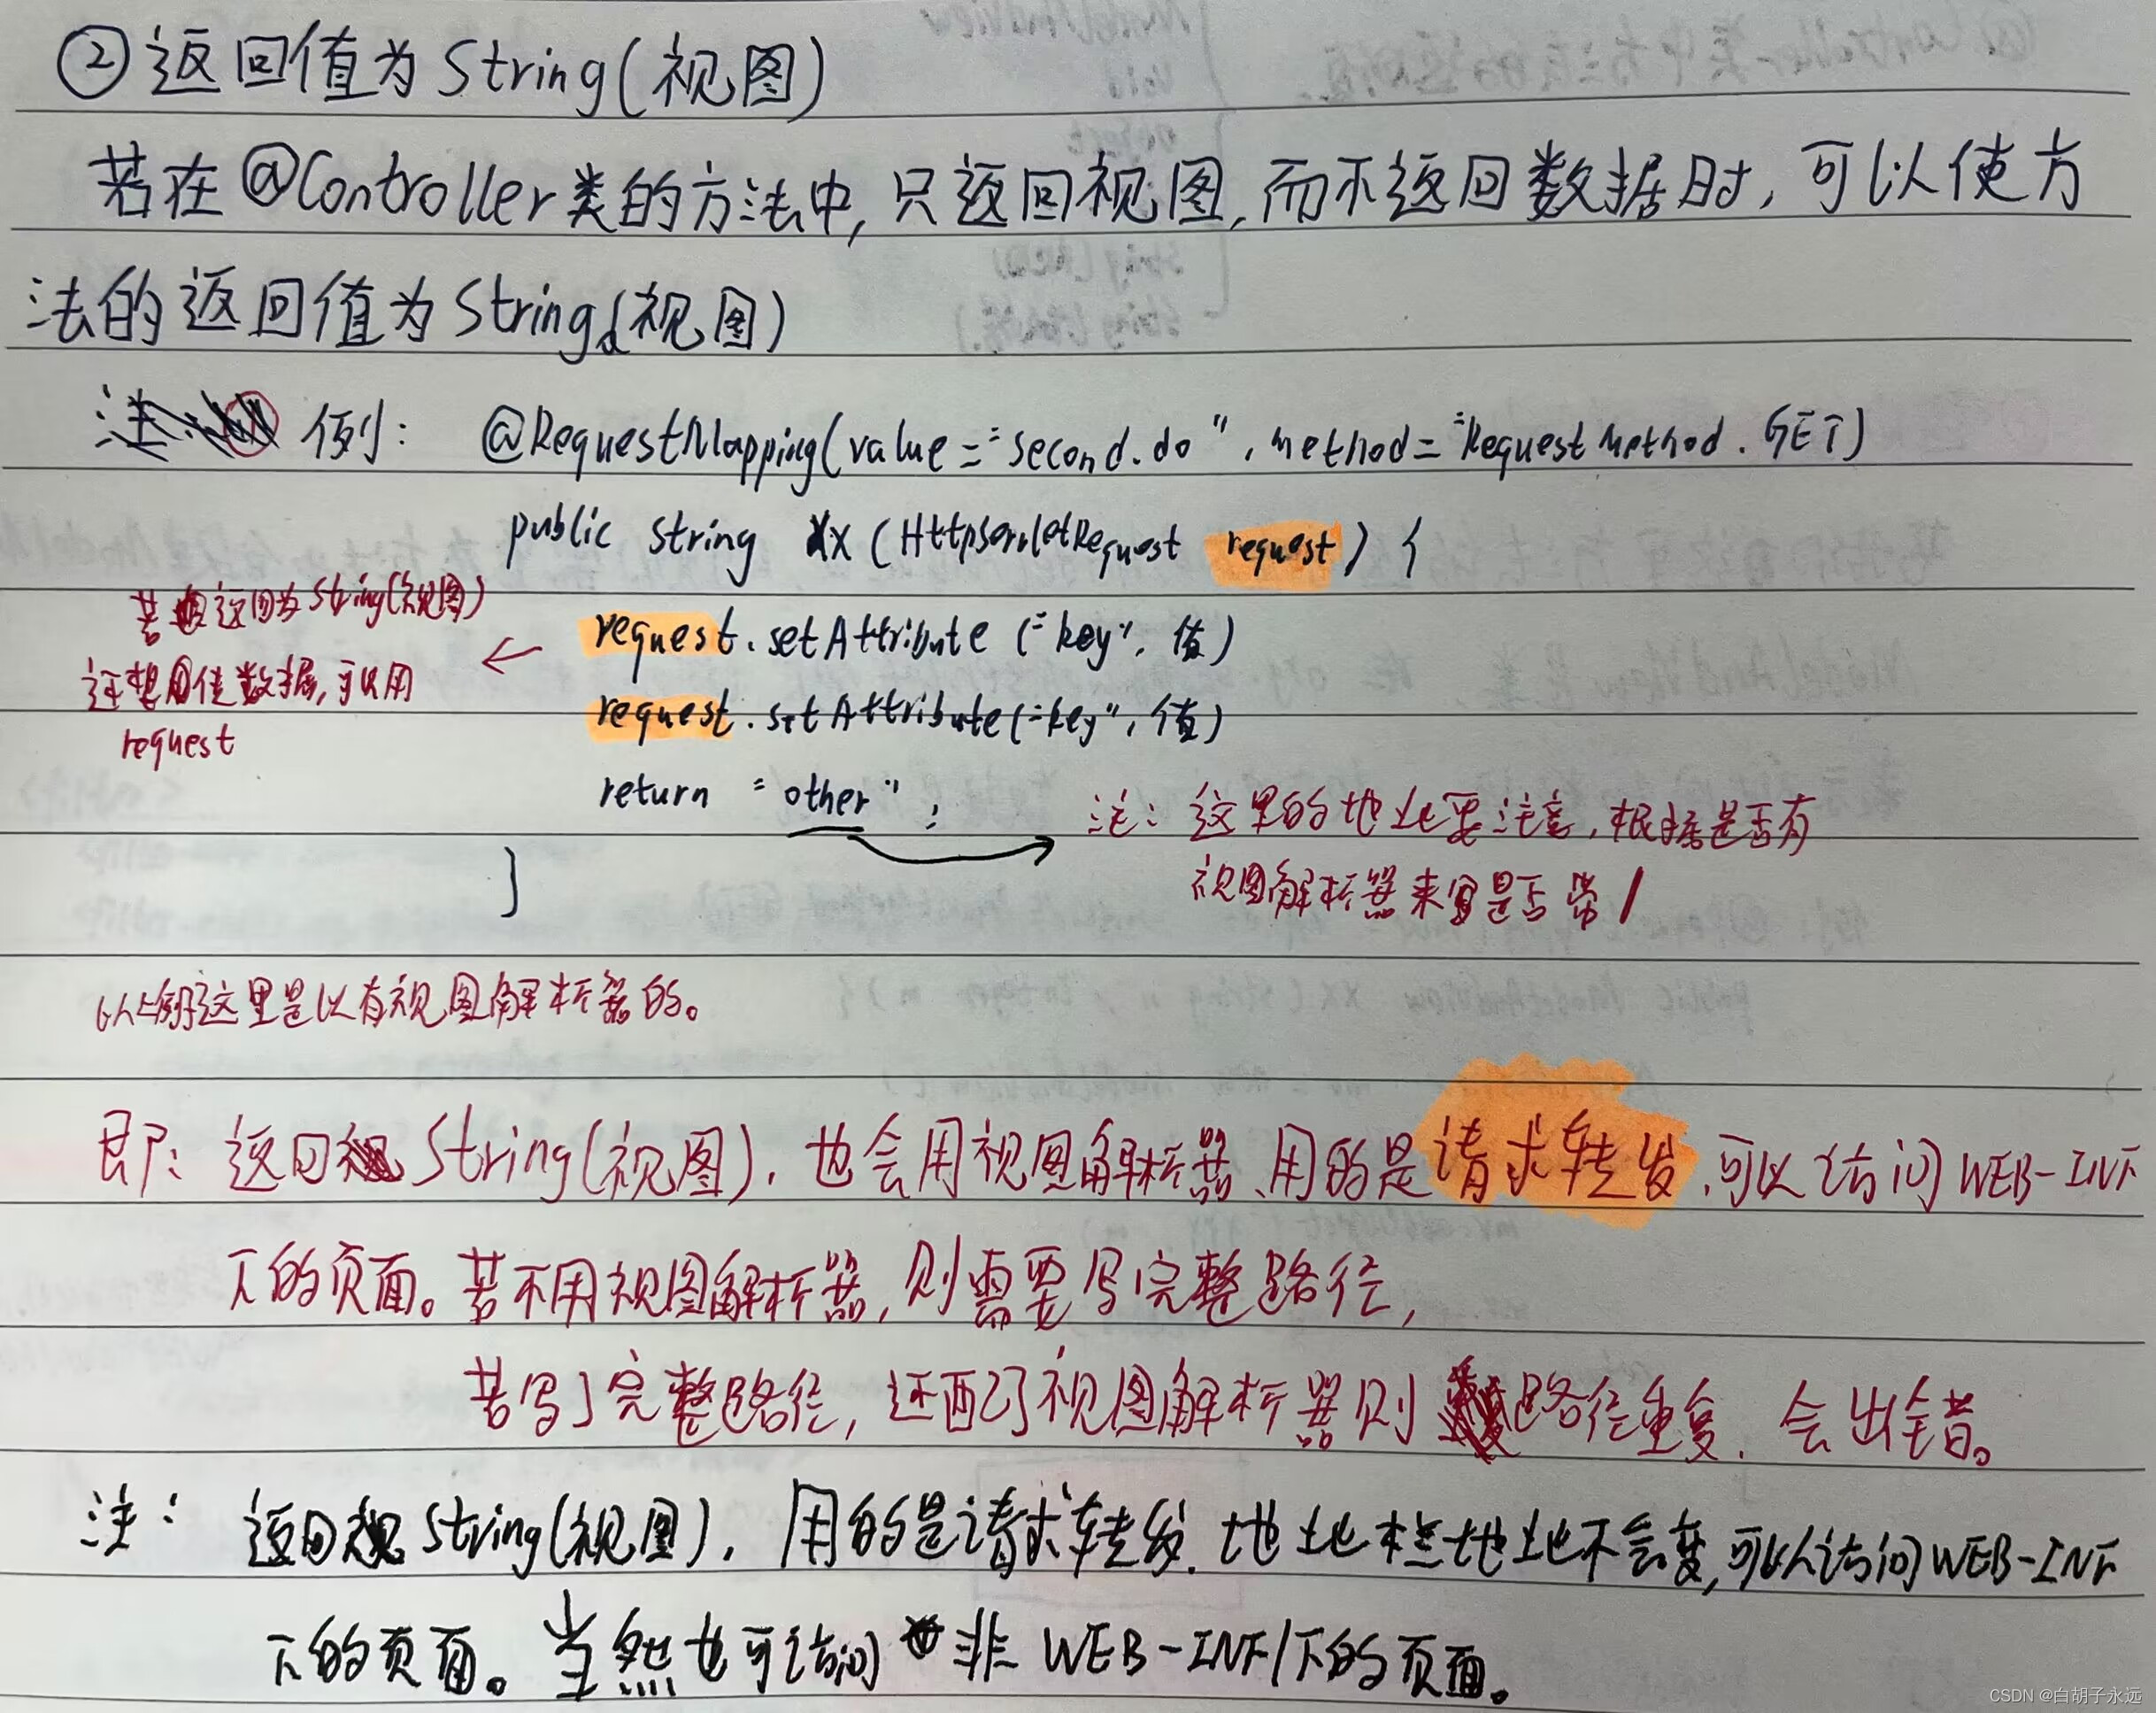 ②返回值为String(视图)
若在@Controller类的方法中,只返回视图,而不返回数据时,可以使方
法的返回值为String(视图)
例: @RequestMapping(value="second.do",method="RequestMethod.GET)
public string xx(HttpServletRequest request){
若返回为String(视图)
还想回传数据,可以用
request
request.setAttribute("key",值)
request.setAttribute("key",值)
return "other";
注:这里的地址要注意,根据是否有
视图解析器来写是否带/
}
以上的这里是以有视图解析器的。
即:返回String(视图),也会用视图解析器、用的是请求转发,可以访问WEB-INF
下的页面。若不用视图解析器,则需要写完整路径,
若写了完整路径,还配了视图解析器则路径重复,会出错。
注:返回String(视图),用的是请求转发,地址栏地址不会变,可以访问WEB-INF
下的页面。当然也可访问非WEB-INF/下的页面。
CSDN @白胡子永远